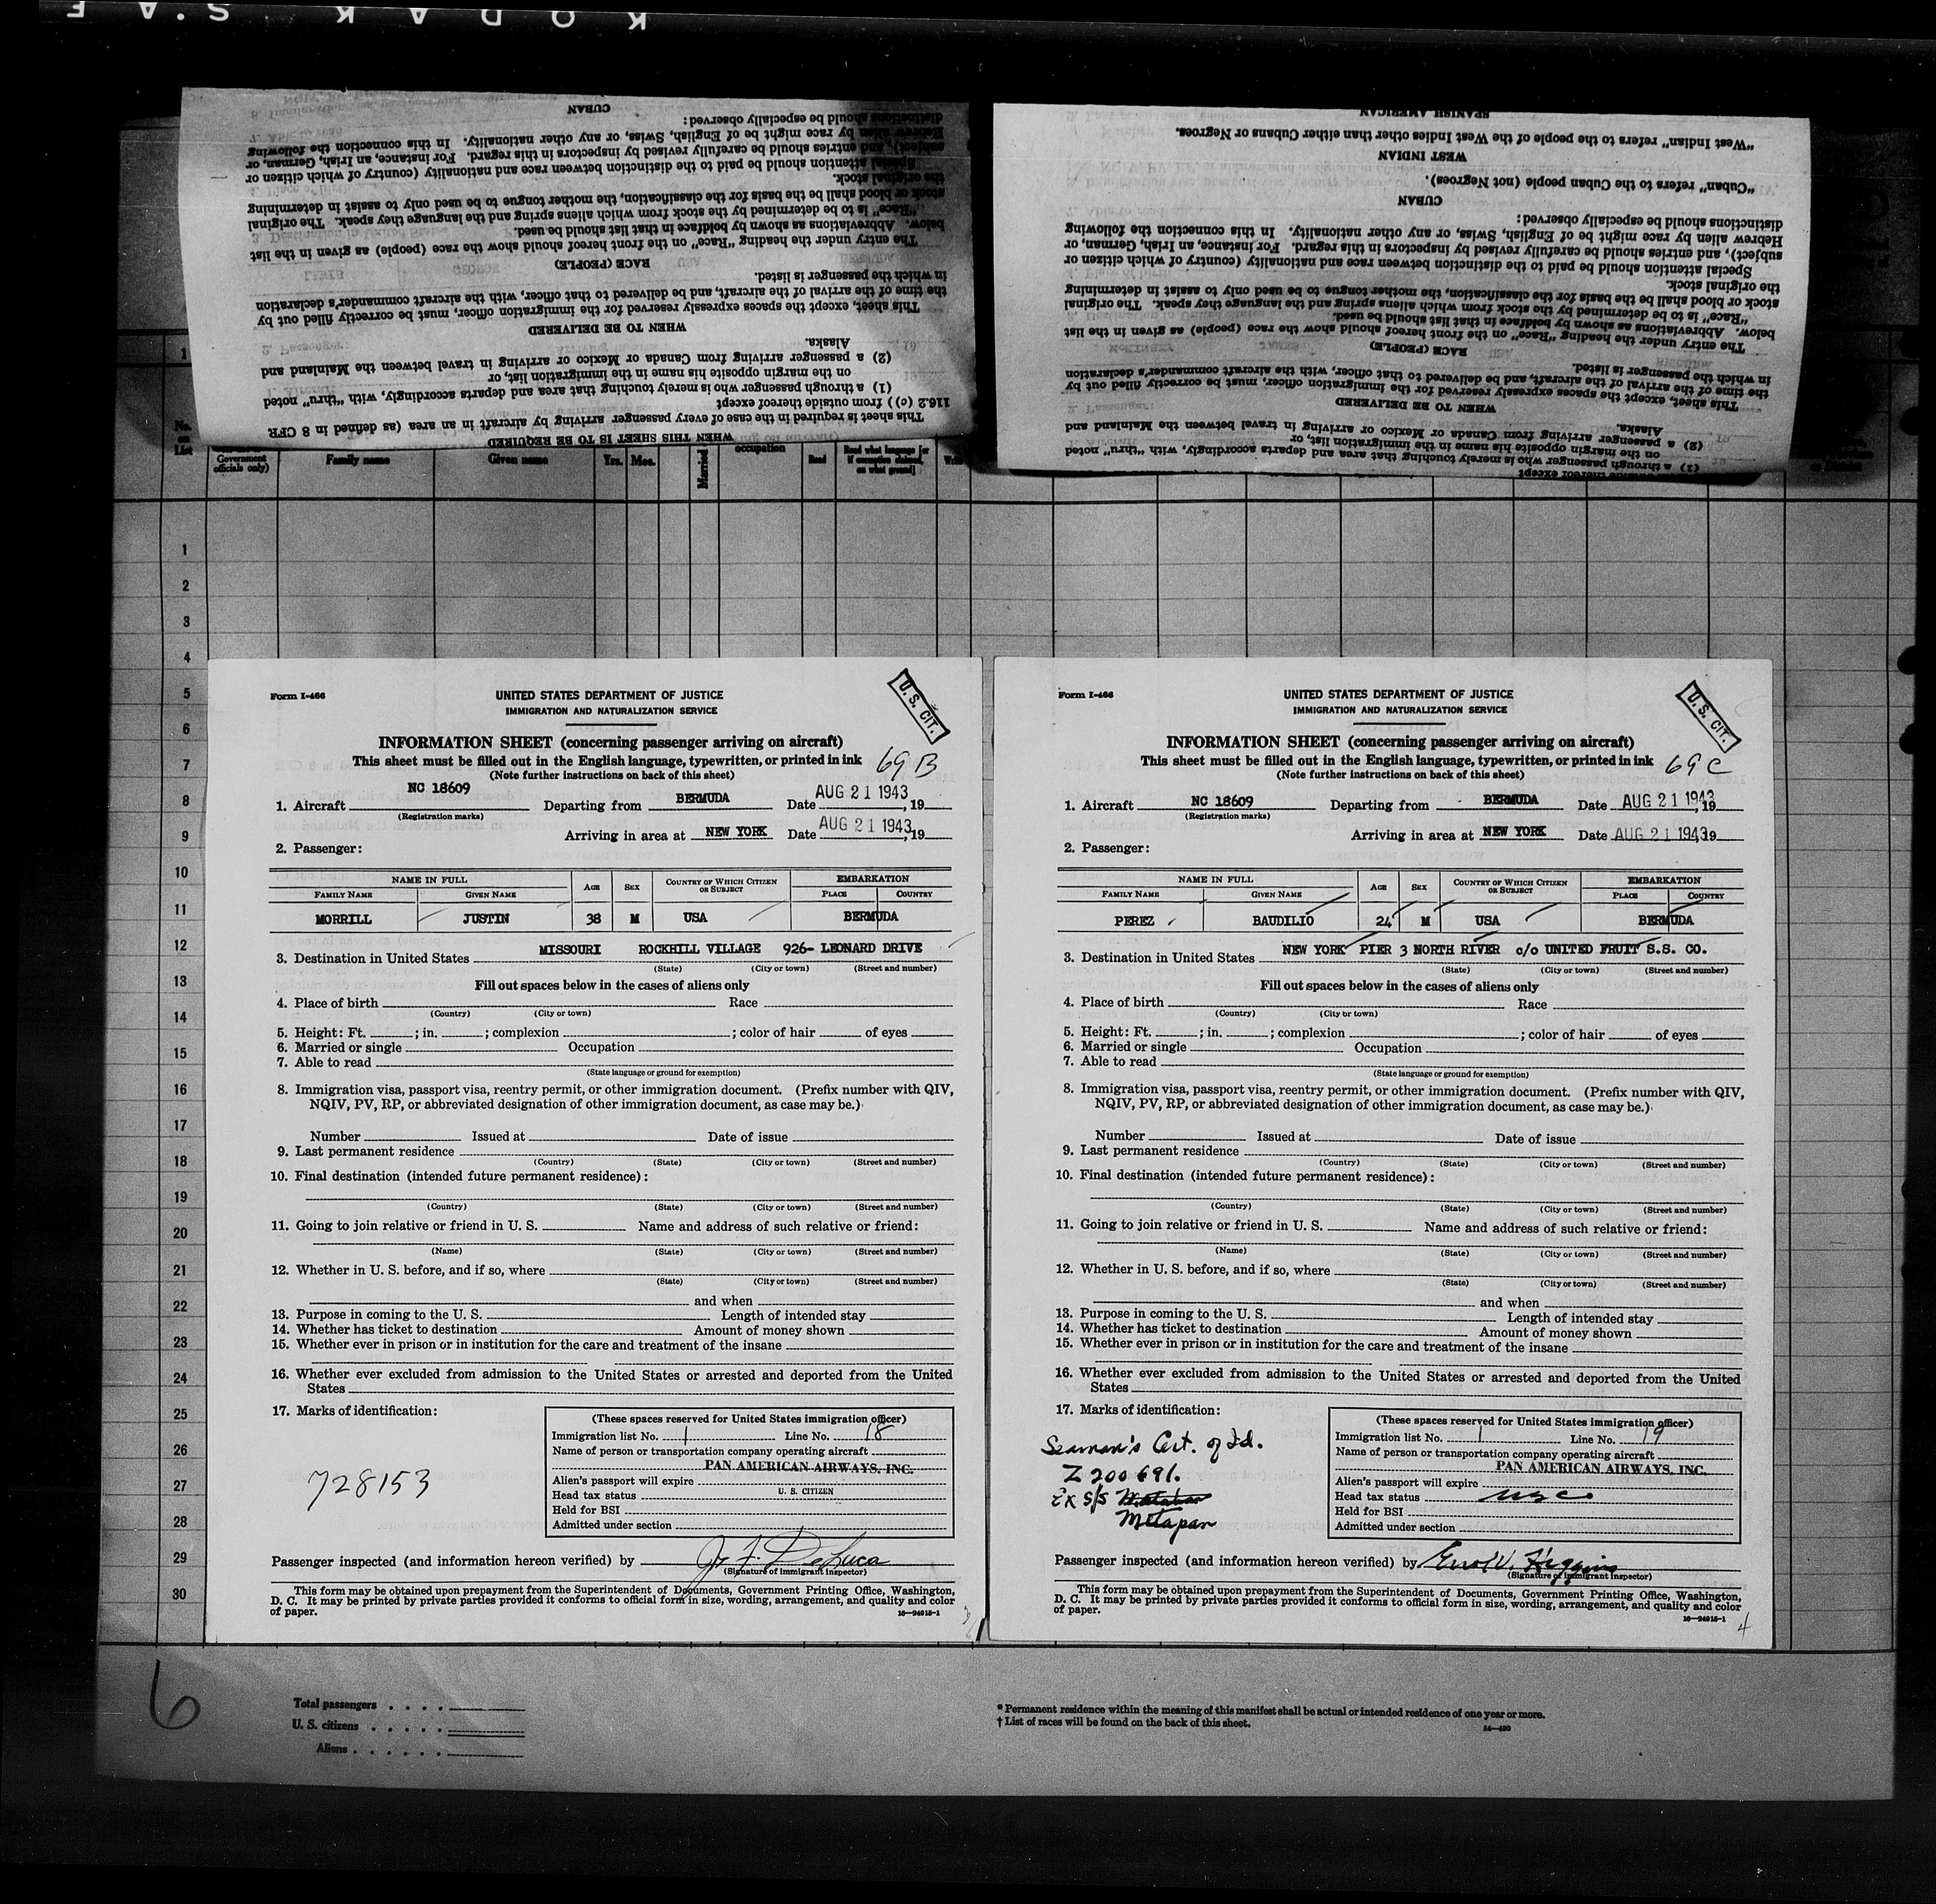 KODAK S.AF
CUBAN
distinctions should be especially observed:
Hebrew alien by race might be of English, Swiss, or any other nationality. In this connection the following
subject), and entries should be carefully revised by inspectors in this regard. For instance, an Irish, German, or
Special attention should be paid to the distinction between race and nationality (country of which citizen or
the original stock.
stock or blood shall be the basis for the classification, the mother tongue to be used only to assist in determining
"Race" is to be determined by the stock from which aliens spring and the language they speak. The original
below. Abbreviations as shown by boldface in that list should be used.
The entry under the heading "Race" on the front hereof should show the race (people) as given in the list
RACE (PEOPLE)
in which the passenger is listed.
the time of the arrival of the aircraft, and be delivered to that officer, with the aircraft commander's declaration
This sheet, except the spaces expressly reserved for the immigration officer, must be correctly filled out by
WHEN TO BE DELIVERED
Alaska.
(2) a passenger arriving from Canada or Mexico or arriving in travel between the Mainland and
on the margin opposite his name in the immigration list, or
(1) a through passenger who is merely touching that area and departs accordingly, with "thru" noted
116.2 (c)) from outside thereof except
This sheet is required in the case of every passenger arriving by aircraft in an area (as defined in 8 CFR
WHEN THIS SHEET IS TO BE REQUIRED
SPANISH AMERICAN
"West Indian" refers to the people of the West Indies other than either Cubans or Negroes.
WEST INDIAN
"Cuban" refers to the Cuban people (not Negroes).
CUBAN
distinctions should be especially observed:
Hebrew alien by race might be of English, Swiss, or any other nationality. In this connection the following
subject), and entries should be carefully revised by inspectors in this regard. For instance, an Irish, German, or
Special attention should be paid to the distinction between race and nationality (country of which citizen or
the original stock.
stock or blood shall be the basis for the classification, the mother tongue to be used only to assist in determining
"Race" is to be determined by the stock from which aliens spring and the language they speak. The original
below. Abbreviations as shown by boldface in that list should be used.
The entry under the heading "Race" on the front hereof should show the race (people) as given in the list
RACE (PEOPLE)
in which the passenger is listed.
the time of the arrival of the aircraft, and be delivered to that officer, with the aircraft commander's declaration
This sheet, except the spaces expressly reserved for the immigration officer, must be correctly filled out by
WHEN TO BE DELIVERED
Alaska.
(2) a passenger arriving from Canada or Mexico or arriving in travel between the Mainland and
on the margin opposite his name in the immigration list, or
(1) a through passenger who is merely touching that area and departs accordingly, with "thru" noted
No. on List
Government officials only)
Family name
Given name
Yrs. Mos.
Married
occupation
Read
Read what language [or if exemption claimed, on what ground]
1
2
3
4
5
6
7
8
9
10
11
12
13
14
15
16
17
18
19
20
21
22
23
24
25
26
27
28
29
30
Form I-466
UNITED STATES DEPARTMENT OF JUSTICE
IMMIGRATION AND NATURALIZATION SERVICE
U.S. CIT.
INFORMATION SHEET (concerning passenger arriving on aircraft)
This sheet must be filled out in the English language, typewritten, or printed in ink 69 B
(Note further instructions on back of this sheet)
1. Aircraft NC 18609 Departing from BERMUDA Date AUG 21 1943, 19
(Registration marks)
Arriving in area at NEW YORK Date AUG 21 1943, 19
2. Passenger:
NAME IN FULL AGE SEX COUNTRY OF WHICH CITIZEN OR SUBJECT EMBARKATION
FAMILY NAME GIVEN NAME PLACE COUNTRY
MORRILL JUSTIN 38 M USA BERMUDA
3. Destination in United States MISSOURI ROCKHILL VILLAGE 926- LEONARD DRIVE
(State) (City or town) (Street and number)
Fill out spaces below in the cases of aliens only
4. Place of birth Race
(Country) (City or town)
5. Height: Ft. ; in. ; complexion ; color of hair of eyes
6. Married or single Occupation
7. Able to read
(State language or ground for exemption)
8. Immigration visa, passport visa, reentry permit, or other immigration document. (Prefix number with QIV,
NQIV, PV, RP, or abbreviated designation of other immigration document, as case may be.)
Number Issued at Date of issue
9. Last permanent residence
(Country) (State) (City or town) (Street and number)
10. Final destination (intended future permanent residence):
(Country) (State) (City or town) (Street and number)
11. Going to join relative or friend in U. S. Name and address of such relative or friend:
(Name) (State) (City or town) (Street and number)
12. Whether in U. S. before, and if so, where
(State) (City or town) (Street and number)
and when
13. Purpose in coming to the U. S. Length of intended stay
14. Whether has ticket to destination Amount of money shown
15. Whether ever in prison or in institution for the care and treatment of the insane
16. Whether ever excluded from admission to the United States or arrested and deported from the United
States
17. Marks of identification:
728153
(These spaces reserved for United States immigration officer)
Immigration list No. 1 Line No. 18
Name of person or transportation company operating aircraft
PAN AMERICAN AIRWAYS, INC.
Alien's passport will expire
Head tax status U. S. CITIZEN
Held for BSI
Admitted under section
Passenger inspected (and information hereon verified) by J. F. DeLuca
(Signature of immigrant inspector)
This form may be obtained upon prepayment from the Superintendent of Documents, Government Printing Office, Washington,
D. C. It may be printed by private parties provided it conforms to official form in size, wording, arrangement, and quality and color
of paper. 16—24915-1
Form I-466
UNITED STATES DEPARTMENT OF JUSTICE
IMMIGRATION AND NATURALIZATION SERVICE
U.S. CIT.
INFORMATION SHEET (concerning passenger arriving on aircraft)
This sheet must be filled out in the English language, typewritten, or printed in ink 69 C
(Note further instructions on back of this sheet)
1. Aircraft NC 18609 Departing from BERMUDA Date AUG 21 1943, 19
(Registration marks)
Arriving in area at NEW YORK Date AUG 21 1943, 19
2. Passenger:
NAME IN FULL AGE SEX COUNTRY OF WHICH CITIZEN OR SUBJECT EMBARKATION
FAMILY NAME GIVEN NAME PLACE COUNTRY
PEREZ BAUDILIO 24 M USA BERMUDA
3. Destination in United States NEW YORK PIER 3 NORTH RIVER c/o UNITED FRUIT S.S. CO.
(State) (City or town) (Street and number)
Fill out spaces below in the cases of aliens only
4. Place of birth Race
(Country) (City or town)
5. Height: Ft. ; in. ; complexion ; color of hair of eyes
6. Married or single Occupation
7. Able to read
(State language or ground for exemption)
8. Immigration visa, passport visa, reentry permit, or other immigration document. (Prefix number with QIV,
NQIV, PV, RP, or abbreviated designation of other immigration document, as case may be.)
Number Issued at Date of issue
9. Last permanent residence
(Country) (State) (City or town) (Street and number)
10. Final destination (intended future permanent residence):
(Country) (State) (City or town) (Street and number)
11. Going to join relative or friend in U. S. Name and address of such relative or friend:
(Name) (State) (City or town) (Street and number)
12. Whether in U. S. before, and if so, where
(State) (City or town) (Street and number)
and when
13. Purpose in coming to the U. S. Length of intended stay
14. Whether has ticket to destination Amount of money shown
15. Whether ever in prison or in institution for the care and treatment of the insane
16. Whether ever excluded from admission to the United States or arrested and deported from the United
States
17. Marks of identification:
Seaman's Cert. of Id.
Z 200691.
Ex S/S
Metapan
(These spaces reserved for United States immigration officer)
Immigration list No. 1 Line No. 19
Name of person or transportation company operating aircraft
PAN AMERICAN AIRWAYS, INC.
Alien's passport will expire
Head tax status usc
Held for BSI
Admitted under section
Passenger inspected (and information hereon verified) by Errol V. Higgins
(Signature of immigrant inspector)
This form may be obtained upon prepayment from the Superintendent of Documents, Government Printing Office, Washington,
D. C. It may be printed by private parties provided it conforms to official form in size, wording, arrangement, and quality and color
of paper. 16—24915-1
4
6
Total passengers
U. S. citizens
Aliens
* Permanent residence within the meaning of this manifest shall be actual or intended residence of one year or more.
† List of races will be found on the back of this sheet. 14—430